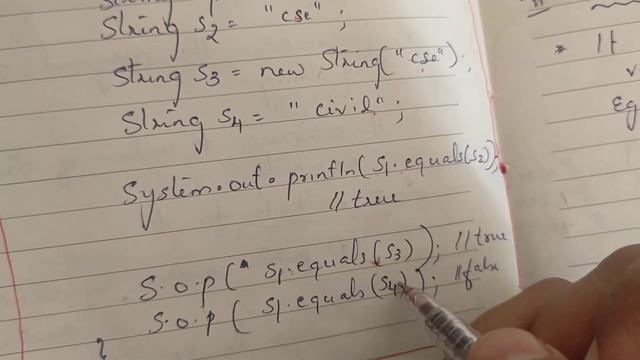 String S2 = "cse";
String S3 = new String("cse");
String S4 = "civil";
System.out.println(S1.equals(S2));
// true
S.O.P( S1.equals(S3)); // true
S.O.P( S1.equals(S4)); // false
}
* It
Eg